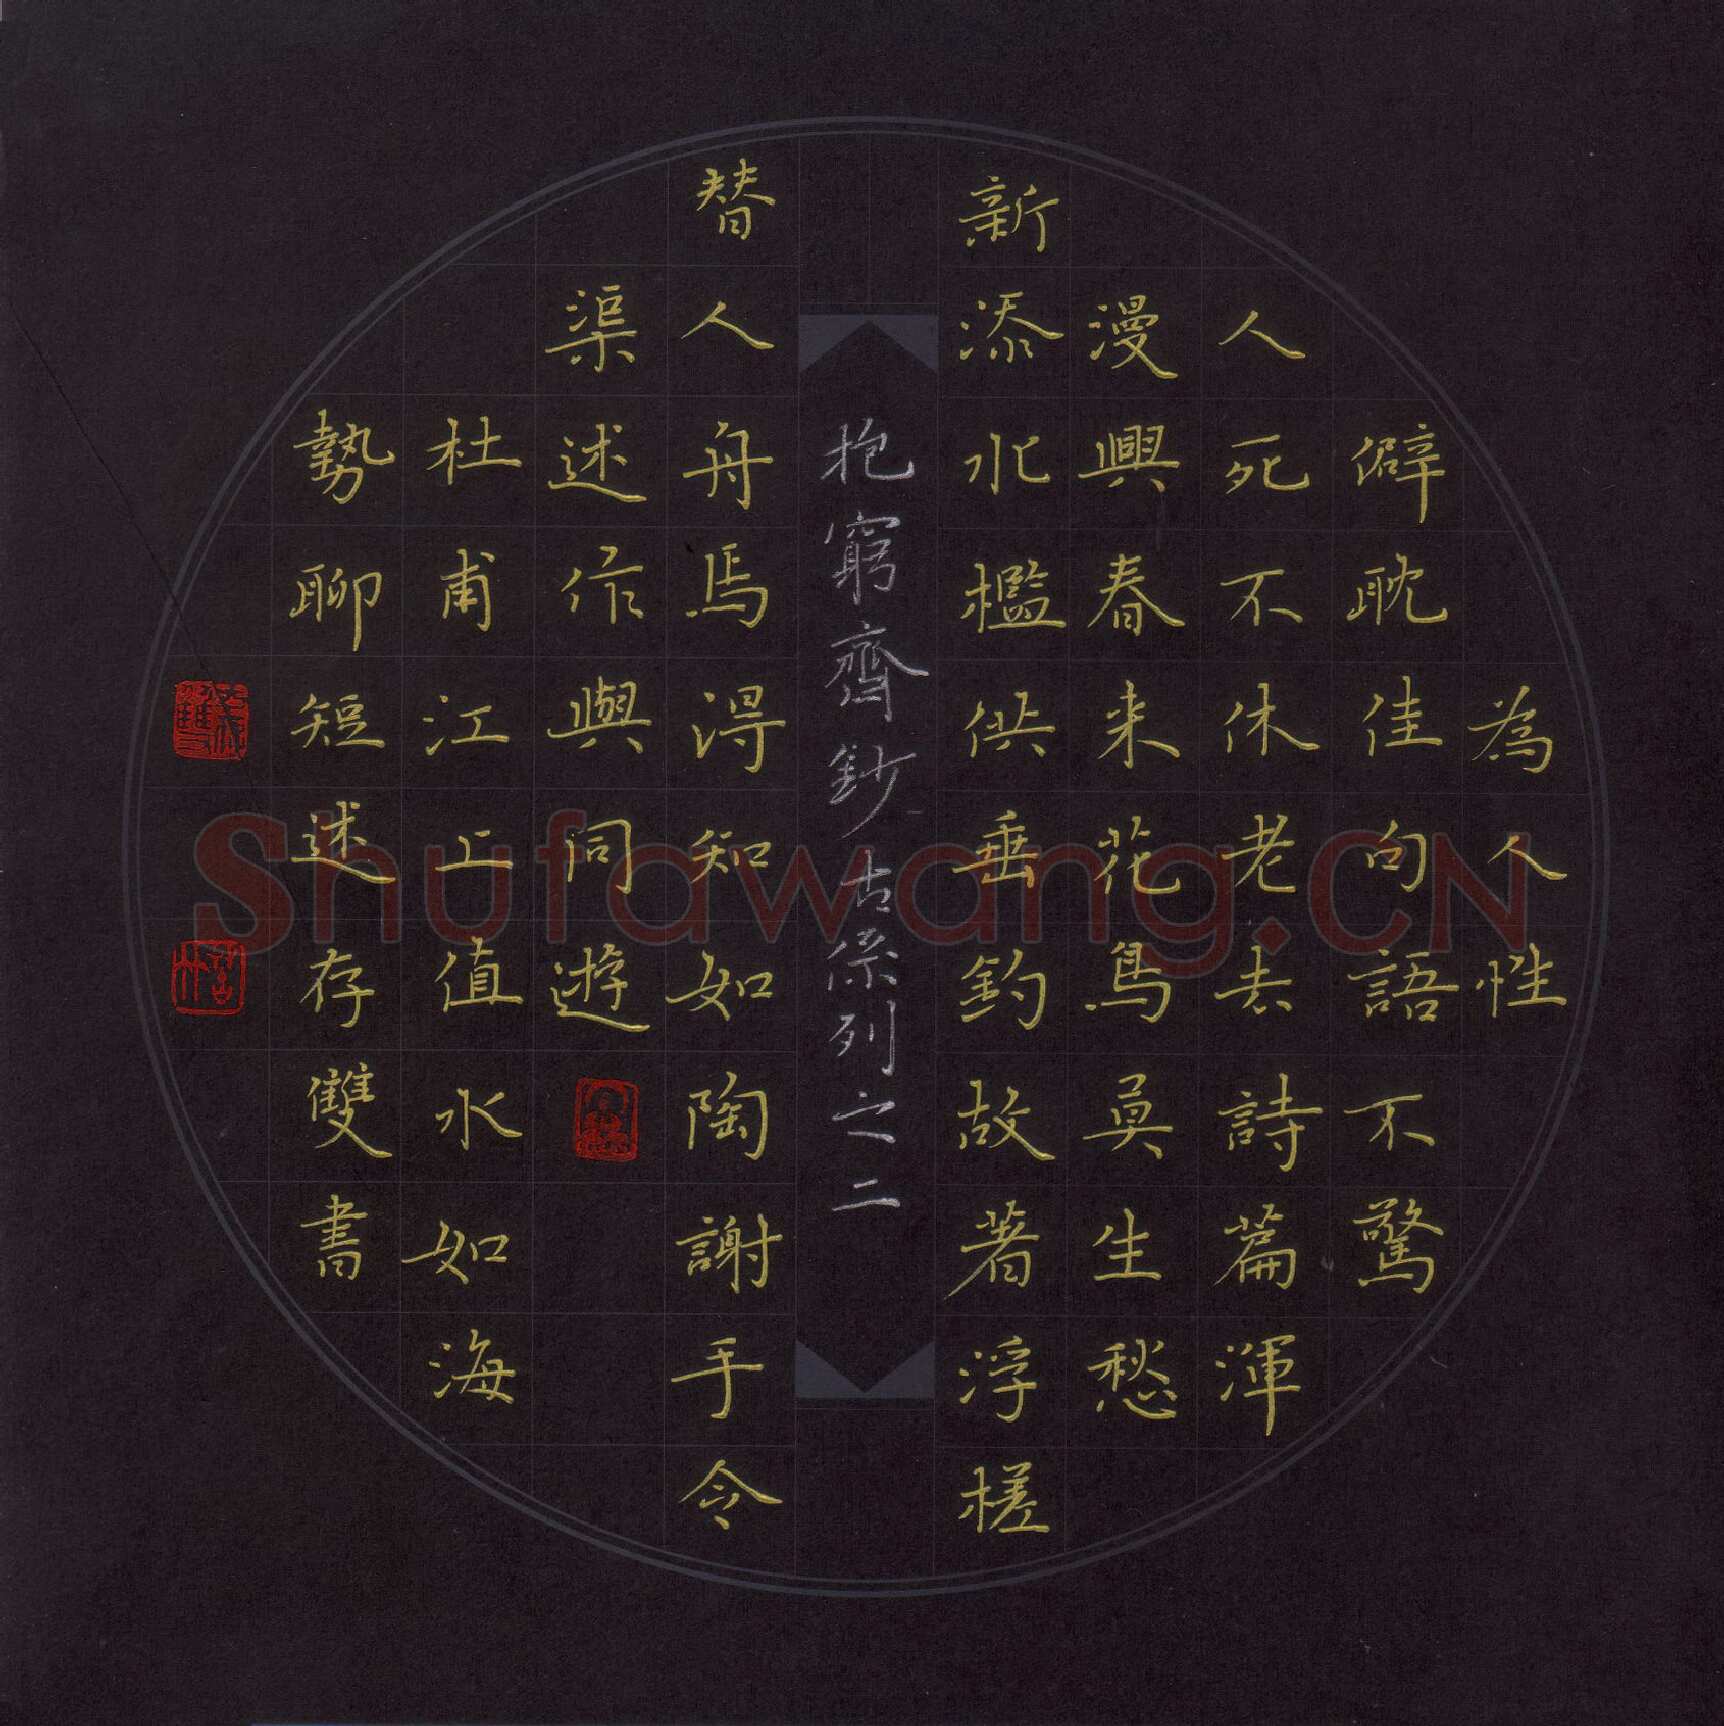 為人性
僻耽佳句語不驚
人死不休老去詩篇渾
漫興春来花鳥莫生愁
新添水檻供垂釣故著浮槎
抱窮齋鈔古系列之二
替人舟焉得知如陶謝手令
渠述作與同遊
杜甫江上值水如海
勢聊短述存雙書
Shufawang.CN